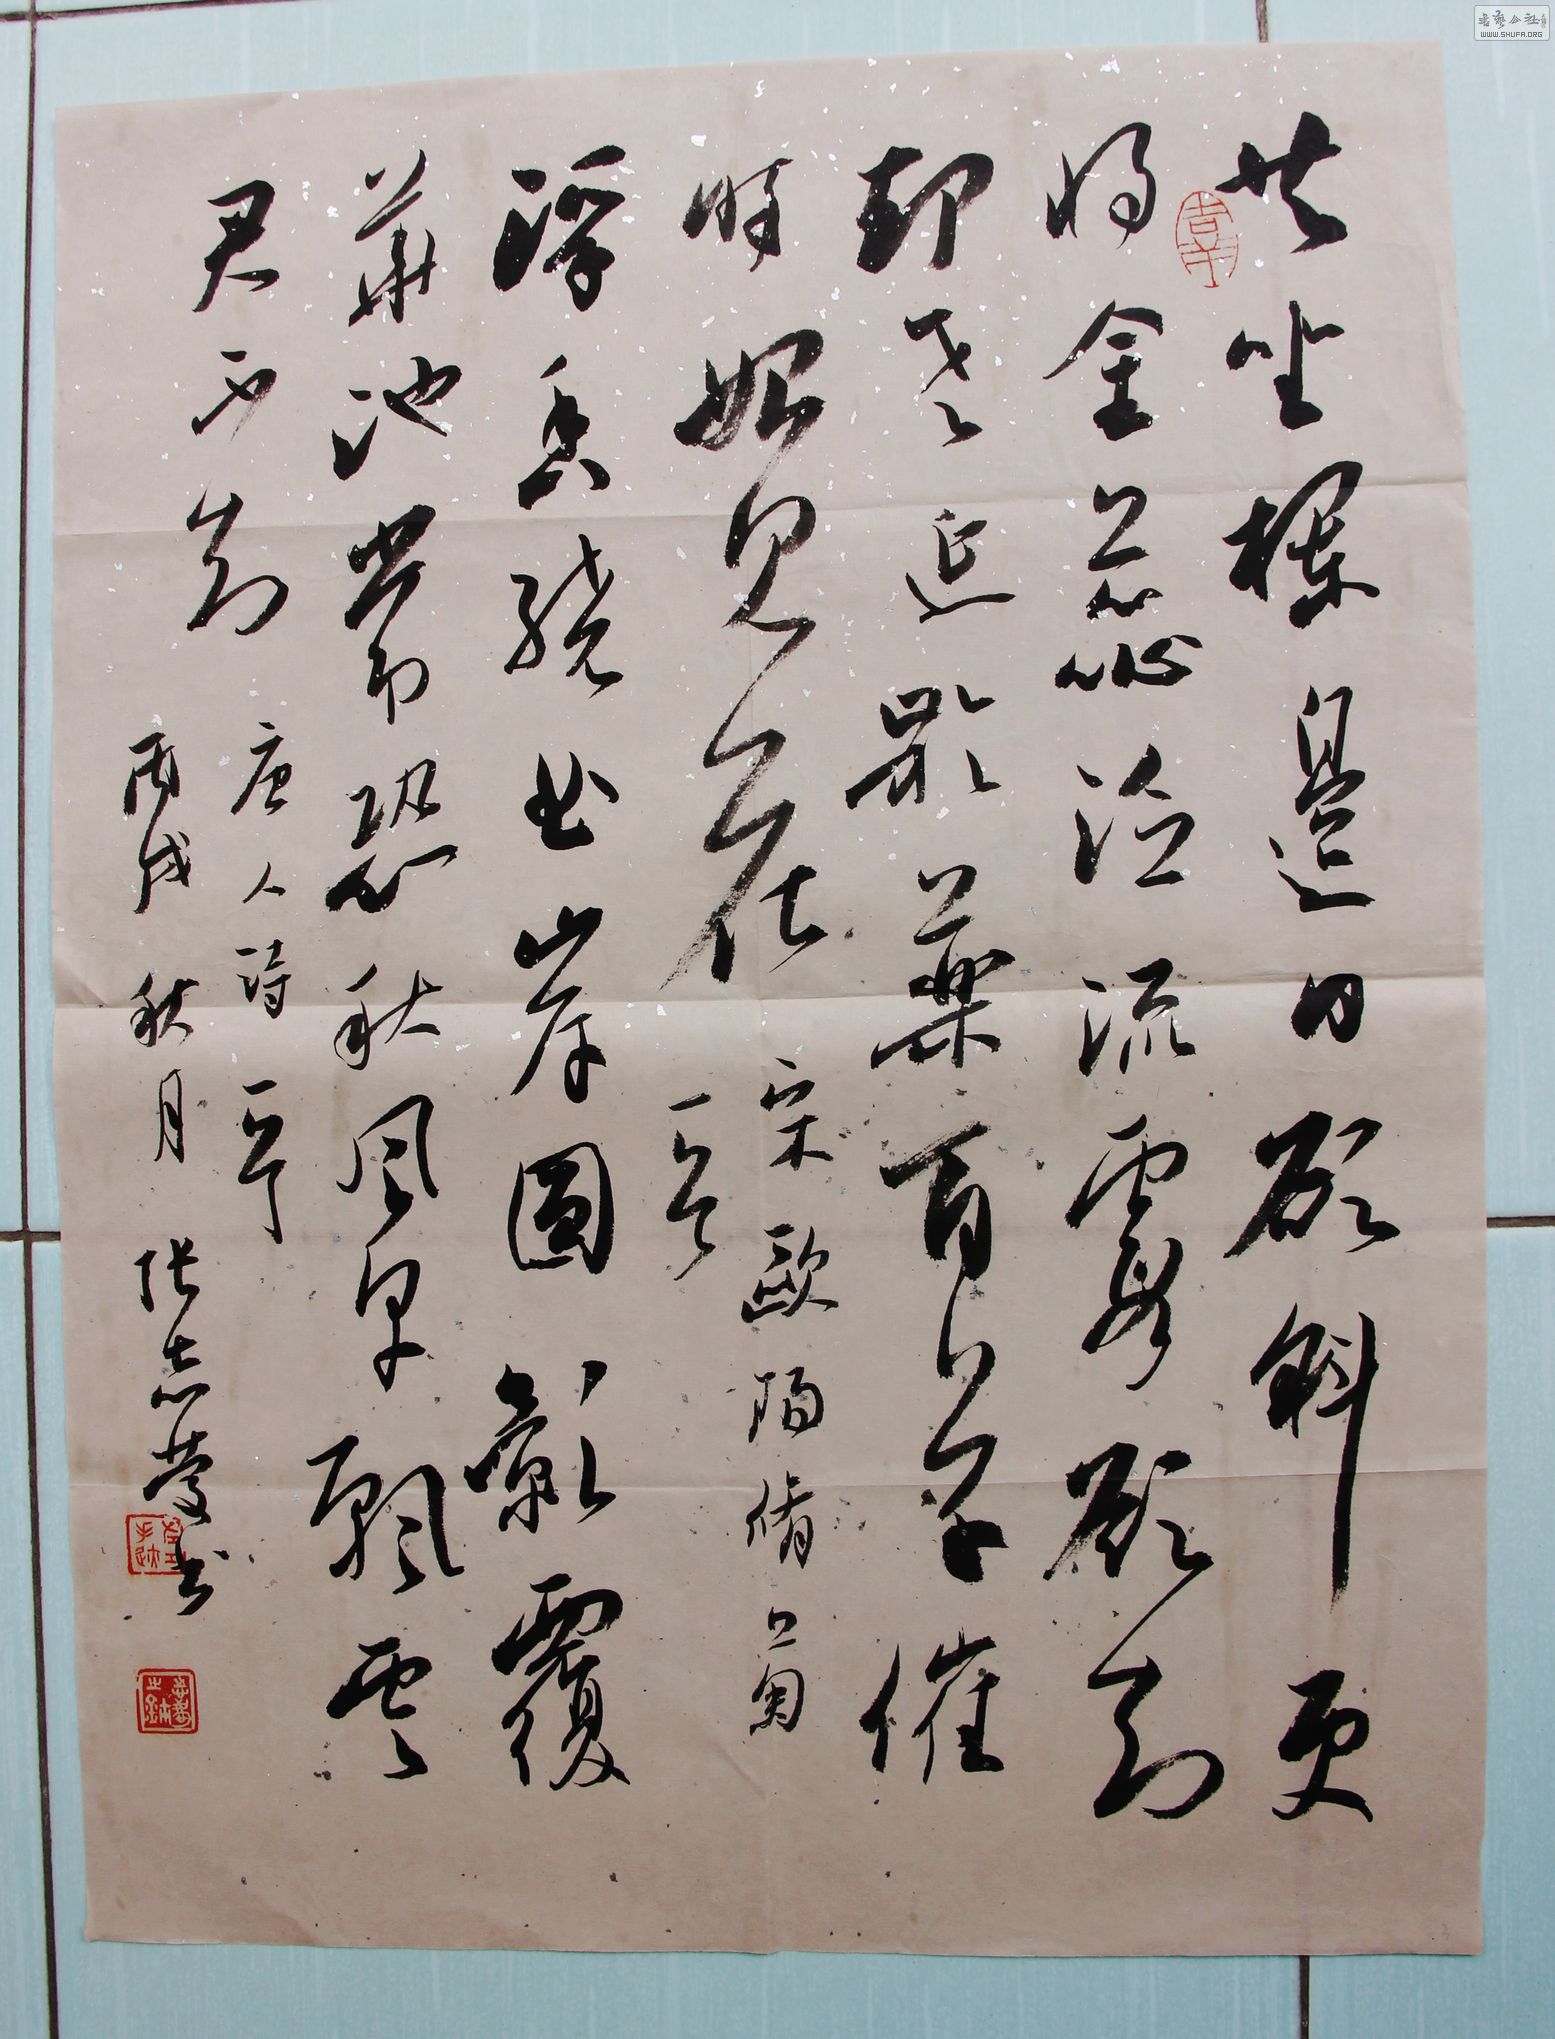 共坐欄邊日欲斜更
將金蕊泛流霞欲知
却老延齡藥百草催
時始見花
宋歐陽脩菊
一首
浮香繞曲岸圓影覆
華池常恐秋風早飄零
君不知
唐人詩一首
丙戌秋月張志書
書藝公社
WWW.SHUFA.ORG